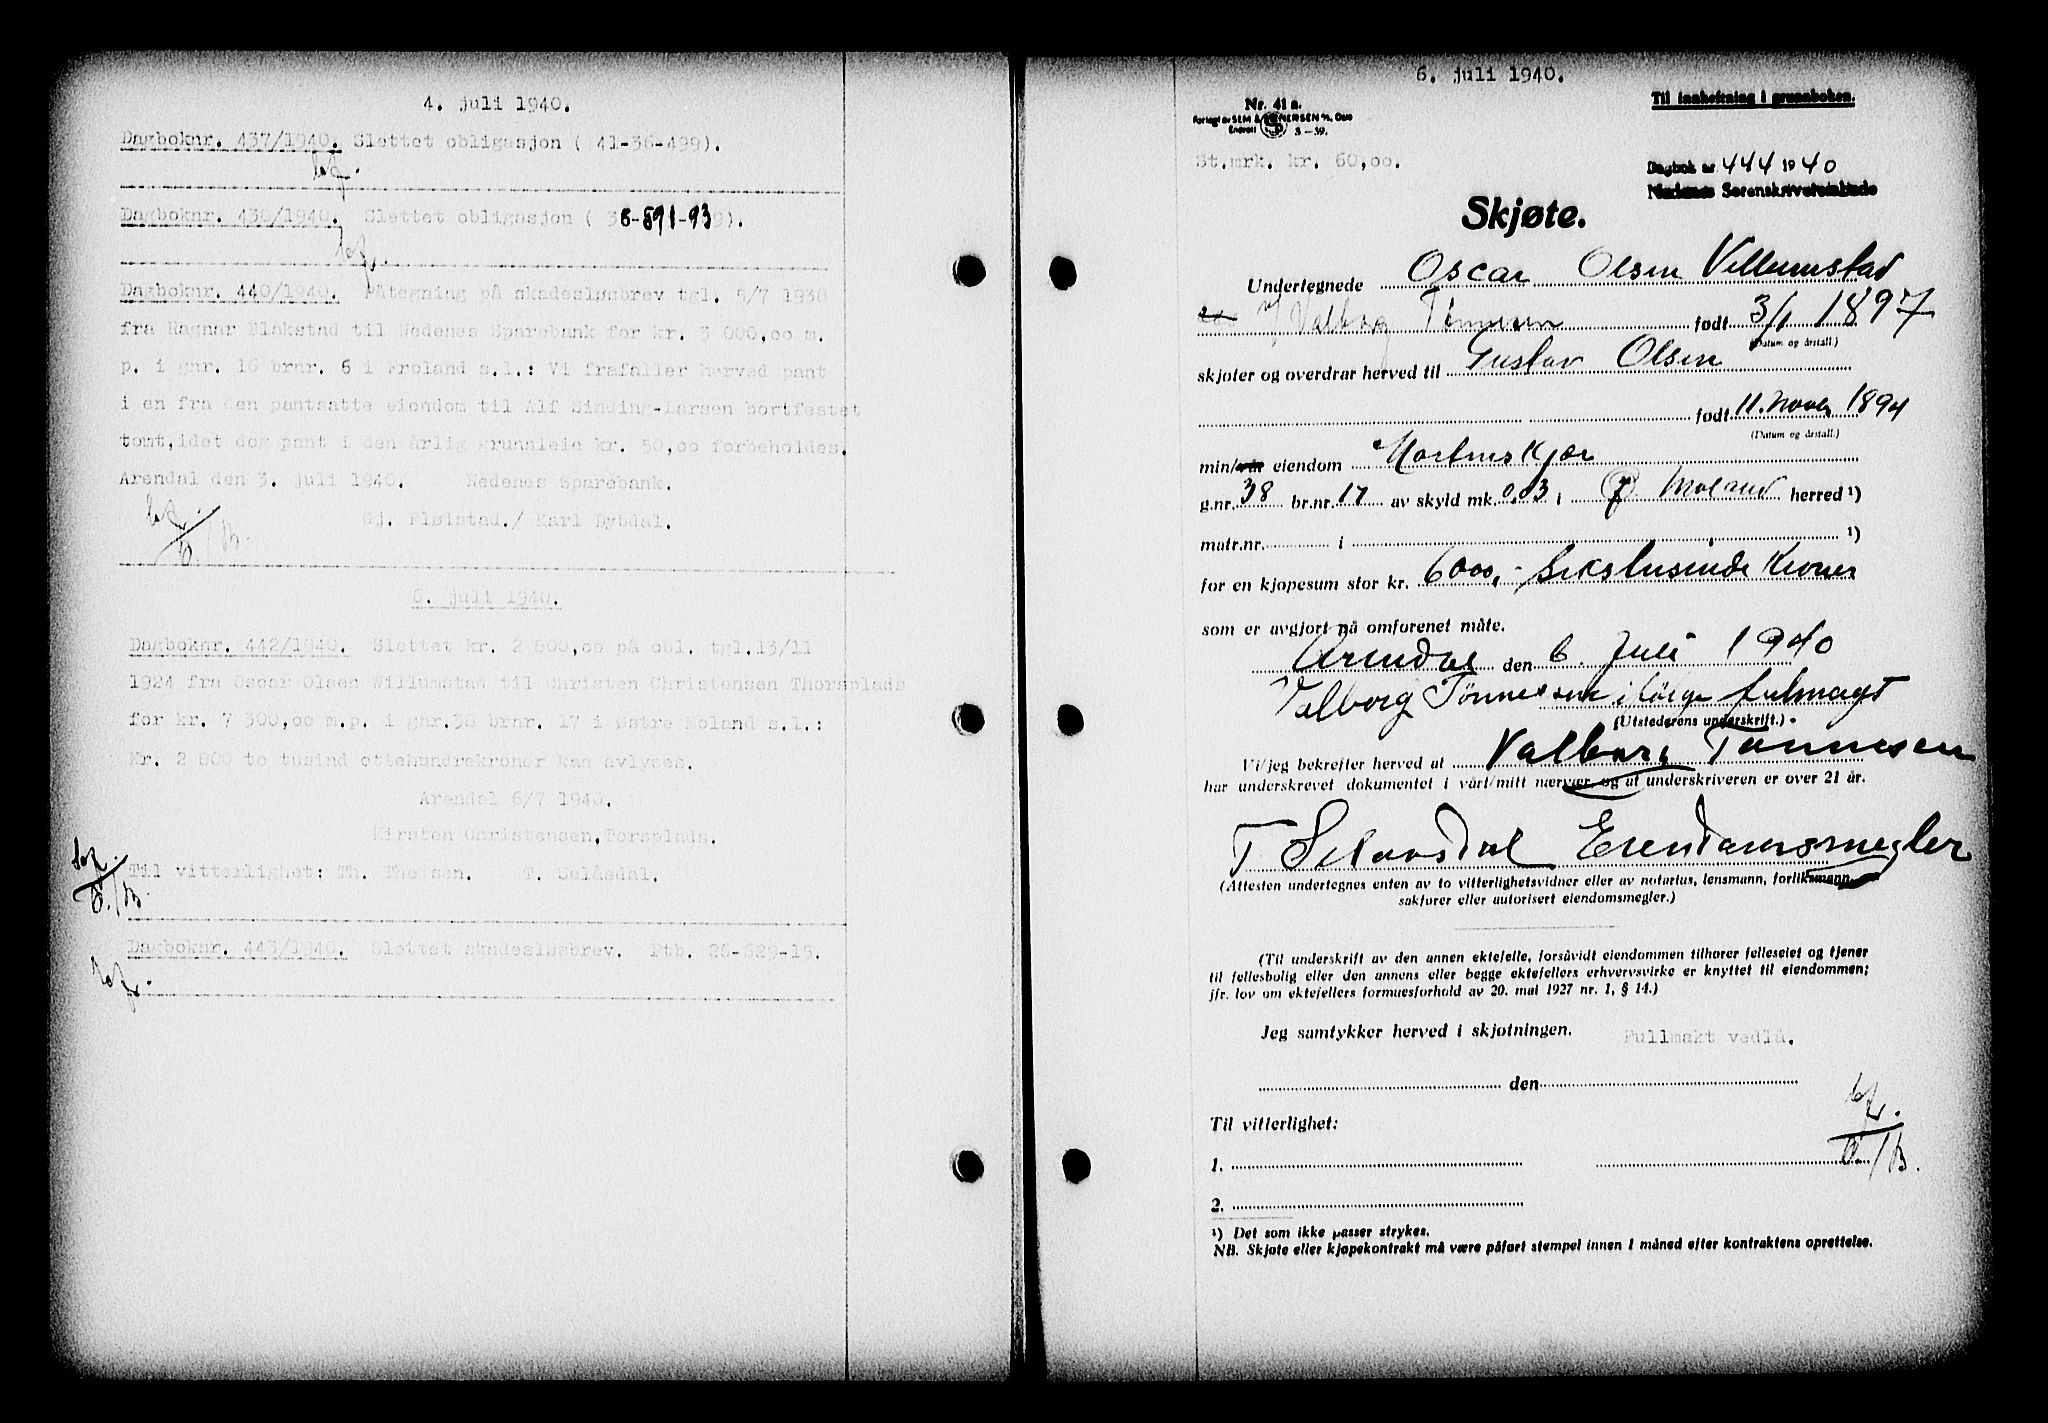 4. juli 1940.
Dagboknr. 437/1940. Slettet obligasjon ( 41-36-499).
Dagboknr. 438/1940. Slettet obligasjon ( 36-591-93).
Dagboknr. 440/1940. Påtegning på skadesløsbrev tgl. 5/7 1938
fra Ragnar Blakstad til Nedenes Sparebank for kr. 3 000,oo m.
p. i gnr. 16 brnr. 6 i Froland s.l.: Vi frafaller herved pant
i en fra den pantsatte eiendom til Alf Sinding-Larsen bortfestet
tomt,idet dog pant i den årlig grunnleie kr. 50,oo forbeholdes.
Arendal den 3. juli 1940. Nedenes Sparebank.
Gj. Fløistad./ Karl Dybdal.
6. juli 1940.
Dagboknr. 442/1940. Slettet kr. 2 800,oo på obl. tgl.13/11
1924 fra Oscar Olsen Willumstad til Christen Christensen Thorsplads
for kr. 7 300,oo m.p. i gnr.38 brnr. 17 i Østre Moland s.l.:
Kr. 2 800 to tusind ottehundrekroner kan avlyses.
Arendal 6/7 1940.
Kirsten Christensen,Torsplads.
Til vitterlighet: Th. Thersen. T. Selåsdal.
Dagboknr. 443/1940. Slettet skadesløsbrev. Ptb. 26-629-15.
6. juli 1940.
Nr. 41 a.
Forlagt av SEM & STENERSEN A/S, Oslo
3-39.
Til innheftning i grunnboken.
St.mrk. kr. 60,oo.
Dagbok nr. 444 1940
Nedenes Sorenskriverembede
Skjøte.
Undertegnede Oscar Olsen Villumstad
v/ Valborg Tønnesen født 3/1 1897
(Datum og årstall.)
skjøter og overdrar herved til Gustav Olsen
født 11. Novbr 1894
(Datum og årstall.)
min/vår eiendom Mortenskjær
g.nr. 38 br.nr. 17 av skyld mk. 0,03 i Ø Moland herred ¹)
matr.nr. i ¹)
for en kjøpesum stor kr. 6000,- Sekstusinde Kroner
som er avgjort på omforenet måte.
Arendal den 6. Juli 1940
Valborg Tønnesen i følge fulmagt
(Utstederens underskrift.)
Vi/jeg bekrefter herved at Valborg Tønnesen
har underskrevet dokumentet i vårt/mitt nærvær og at underskriveren er over 21 år.
T Selaasdal Eiendomsmegler
(Attesten undertegnes enten av to vitterlighetsvidner eller av notarius, lensmann, forliksmann,
sakfører eller autorisert eiendomsmegler.)
(Til underskrift av den annen ektefelle, forsåvidt eiendommen tilhører felleseiet og tjener
til fellesbolig eller den annens eller begge ektefellers erhvervsvirke er knyttet til eiendommen;
jfr. lov om ektefellers formuesforhold av 20. mai 1927 nr. 1, § 14.)
Jeg samtykker herved i skjøtningen. Fullmakt vedlå.
den
Til vitterlighet:
1.
2.
¹) Det som ikke passer strykes.
NB. Skjøte eller kjøpekontrakt må være påført stempel innen 1 måned efter kontraktens oprettelse.